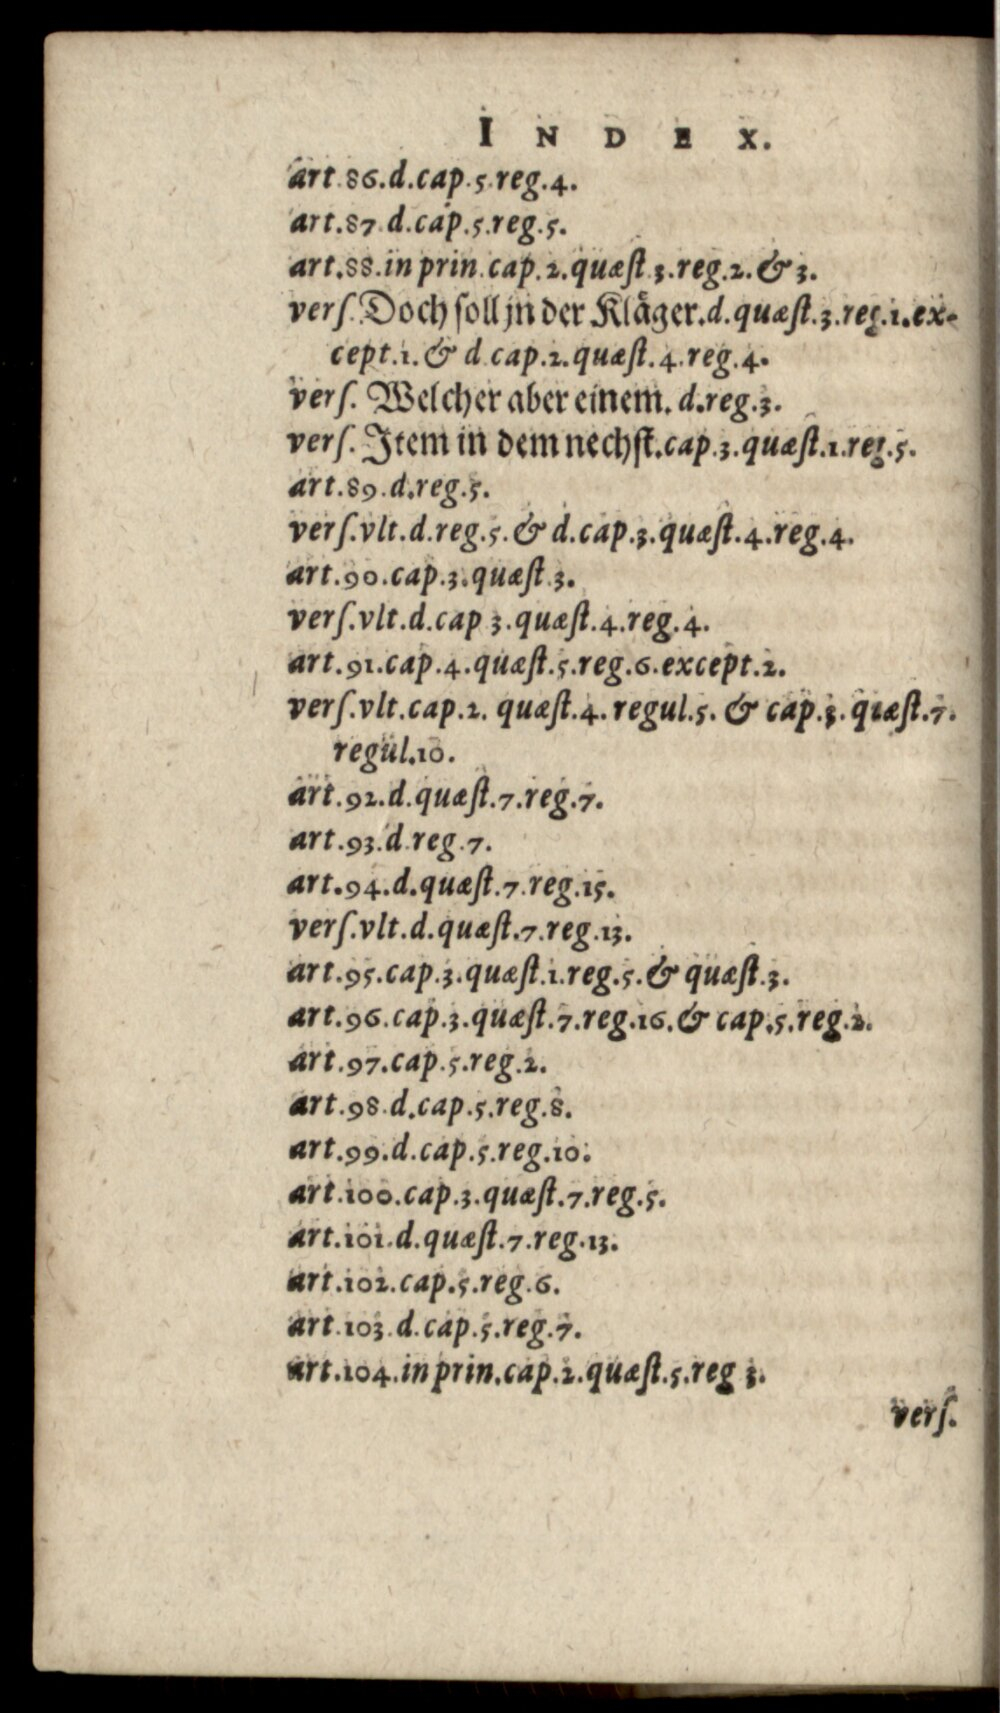 INDEX.
art.86.d.cap.5.reg.4.
art.87.d.cap.5.reg.5.
art.88.in prin.cap.2.quæſt.3.reg.2.& 3.
verſ.Doch ſoll jn der Klåger.d.quæſt.3.reg.1.ex-
cept.1.& d.cap.2.quæſt.4.reg.4.
verſ. Welcher aber einem. d.reg.3.
verſ. Item in dem nechſt.cap.3.quæſt.1.reg.5.
art.89.d.reg.5.
verſ.vlt.d.reg.5.& d.cap.3.quæſt.4.reg.4.
art.90.cap.3.quæſt.3.
verſ.vlt.d.cap 3.quæſt.4.reg.4.
art.91.cap.4.quæſt.5.reg.6.except.2.
verſ.vlt.cap.2. quæſt.4. regul.5. & cap.3. quæſt.7.
regul.10.
art.92.d.quæſt.7.reg.7.
art.93.d.reg.7.
art.94.d.quæſt.7.reg.15.
verſ.vlt.d.quæſt.7.reg.13.
art.95.cap.3.quæſt.1.reg.5.& quæſt.3.
art.96.cap.3.quæſt.7.reg.16.& cap.5.reg.2.
art.97.cap.5.reg.2.
art.98.d.cap.5.reg.8.
art.99.d.cap.5.reg.10.
art.100.cap.3.quæſt.7.reg.5.
art.101.d.quæſt.7.reg.13.
art.102.cap.5.reg.6.
art.103.d.cap.5.reg.7.
art.104.in prin.cap.2.quæſt.5.reg 3.
verſ.